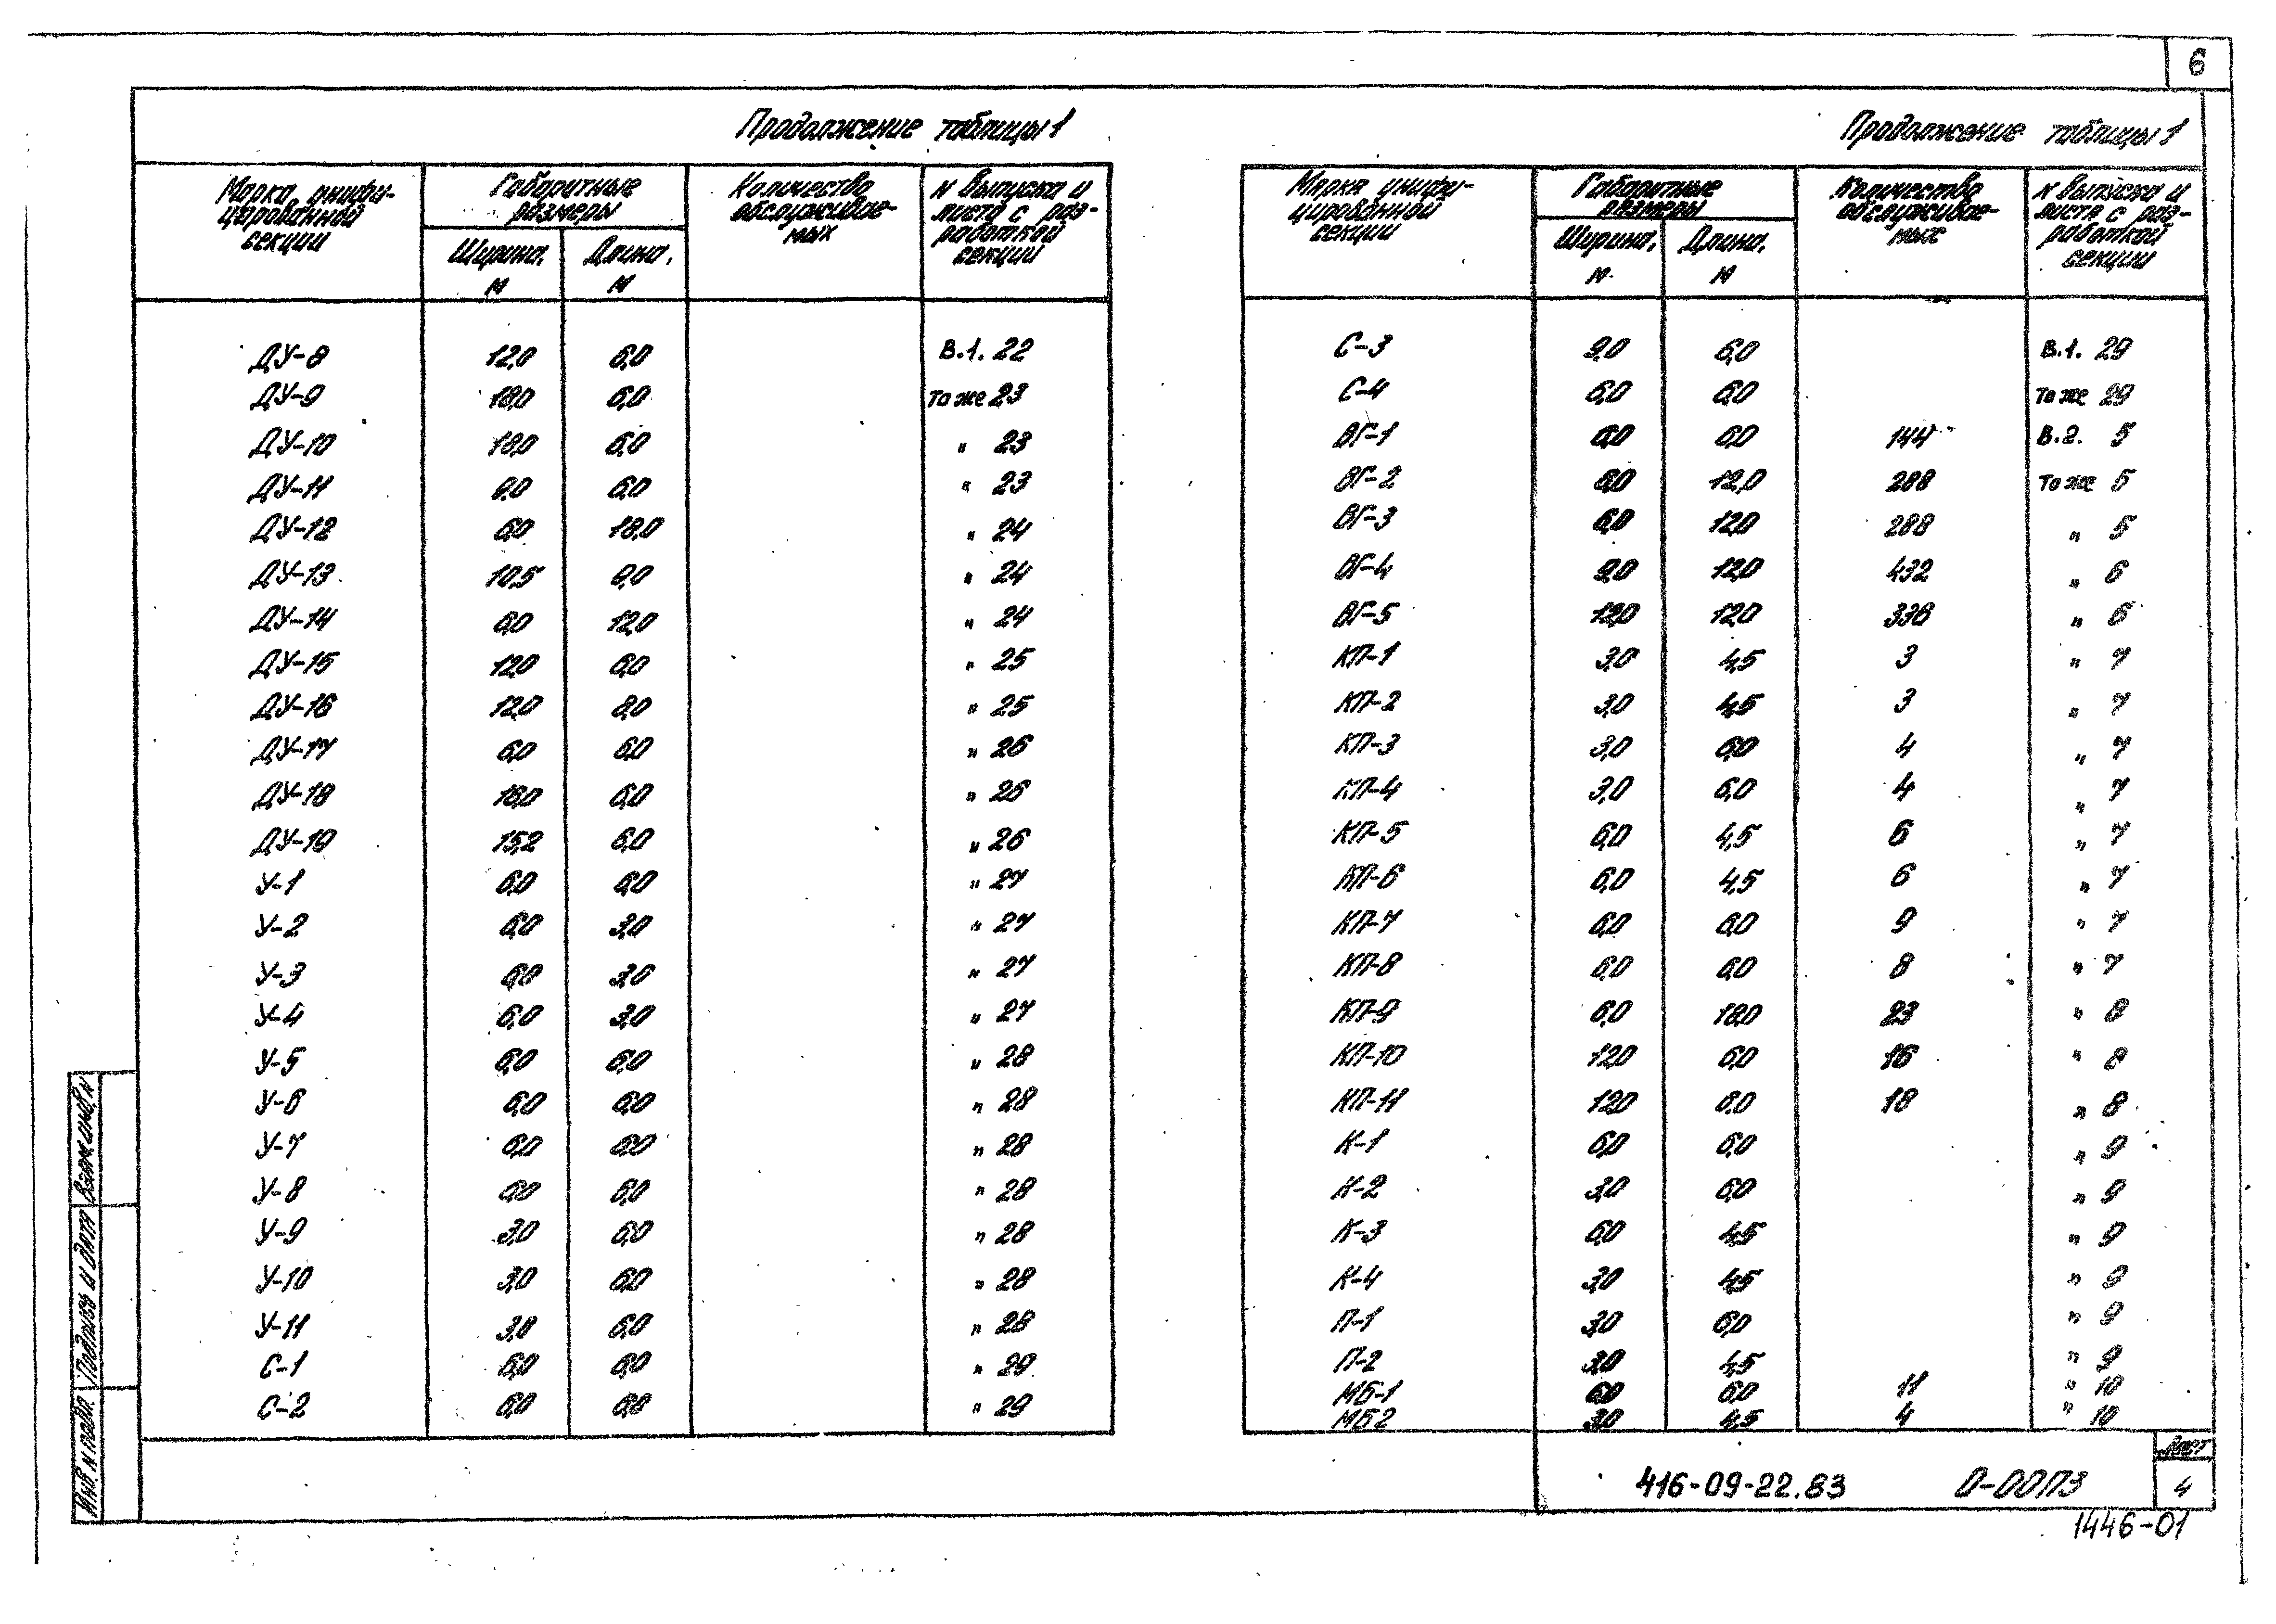 6
Продолжение таблицы 1
Марка унифи-
цированной
секции
Габаритные
размеры
Ширина,
м
Длина,
м
Количество
обслуживае-
мых
N выпуска и
листа с раз-
работкой
секции
ДУ-8 12,0 6,0 В.1. 22
ДУ-9 18,0 6,0 То же 23
ДУ-10 18,0 6,0 " 23
ДУ-11 9,0 6,0 " 23
ДУ-12 6,0 18,0 " 24
ДУ-13 10,5 9,0 " 24
ДУ-14 6,0 12,0 " 24
ДУ-15 12,0 6,0 " 25
ДУ-16 12,0 " 25
ДУ-17 6,0 6,0 " 26
ДУ-18 18,0 6,0 " 26
ДУ-19 15,2 6,0 " 26
У-1 6,0 6,0 " 27
У-2 6,0 3,0 " 27
У-3 6,0 3,0 " 27
У-4 6,0 3,0 " 27
У-5 6,0 6,0 " 28
У-6 6,0 6,0 " 28
У-7 6,0 6,0 " 28
У-8 6,0 6,0 " 28
У-9 3,0 6,0 " 28
У-10 3,0 6,0 " 28
У-11 3,0 6,0 " 28
С-1 6,0 6,0 " 29
С-2 6,0 6,0 " 29
Продолжение таблицы 1
Марка унифи-
цированной
секции
Габаритные
размеры
Ширина,
м
Длина,
м
Количество
обслуживае-
мых
N выпуска и
листа с раз-
работкой
секции
С-3 9,0 6,0 В.1. 29
С-4 6,0 6,0 То же 29
ВГ-1 6,0 6,0 144 В.2. 5
ВГ-2 6,0 12,0 288 То же 5
ВГ-3 6,0 12,0 288 " 5
ВГ-4 9,0 12,0 432 " 6
ВГ-5 12,0 12,0 336 " 6
КП-1 3,0 4,5 3 " 7
КП-2 3,0 4,5 3 " 7
КП-3 3,0 6,0 4 " 7
КП-4 3,0 6,0 4 " 7
КП-5 6,0 4,5 6 " 7
КП-6 6,0 4,5 6 " 7
КП-7 6,0 6,0 9 " 7
КП-8 6,0 6,0 8 " 7
КП-9 6,0 18,0 23 " 8
КП-10 12,0 6,0 16 " 8
КП-11 12,0 6,0 18 " 8
К-1 6,0 6,0 " 9
К-2 3,0 6,0 " 9
К-3 6,0 4,5 " 9
К-4 3,0 4,5 " 9
П-1 3,0 6,0 " 9
П-2 3,0 4,5 " 9
МБ-1 6,0 6,0 11 " 10
МБ2 3,0 4,5 4 " 10
Взам. инв. N
Подпись и дата
Инв. N подл.
416-09-22.83 0-00ПЗ
Лист
4
1446-01